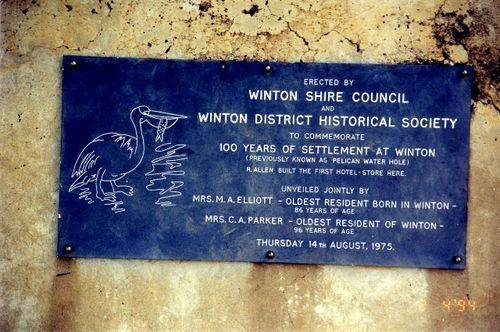 ERECTED BY
WINTON SHIRE COUNCIL
AND
WINTON DISTRICT HISTORICAL SOCIETY
TO COMMEMORATE
100 YEARS OF SETTLEMENT AT WINTON
(PREVIOUSLY KNOWN AS PELICAN WATER HOLE)
R. ALLEN BUILT THE FIRST HOTEL-STORE HERE.
UNVEILED JOINTLY BY
MRS. M. A. ELLIOTT - OLDEST RESIDENT BORN IN WINTON -
86 YEARS OF AGE
MRS. C. A. PARKER - OLDEST RESIDENT OF WINTON -
96 YEARS OF AGE
THURSDAY 14TH AUGUST, 1975.
4 '94